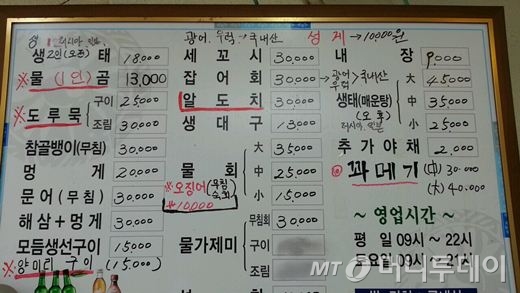 광어, 우럭 → 국내산 성게 → 10000원
생2인(오존)태 18,000
※물(1인)곰 13,000
※도루묵 구이 25,000
조림 30,000
참골뱅이(무침) 30,000
멍게 20,000
문어(무침) 30,000
해삼+멍게 30,000
모듬생선구이 15,000
※양미리 구이 (15,000)
세꼬시 30,000
잡어회 30,000 → 광어 우럭 > 국내산
알도치 30,000
생대구 13,000
물회 大 35,000
中 25,000
小 15,000
※오징어(무침 숙회)
※10,000
물가제미 무침회 30,000
구이
조림
내장 9,000
大 45,000
생태(매운탕) 中 35,000
(오존) 小 25,000
러시아, 일본
추가야채 2,000
◎과메기 (中) 30.000
(大) 40.000
<영업시간>
평일 09시 ~ 22시
토요일 09시 ~ 21시
MT 머니투데이